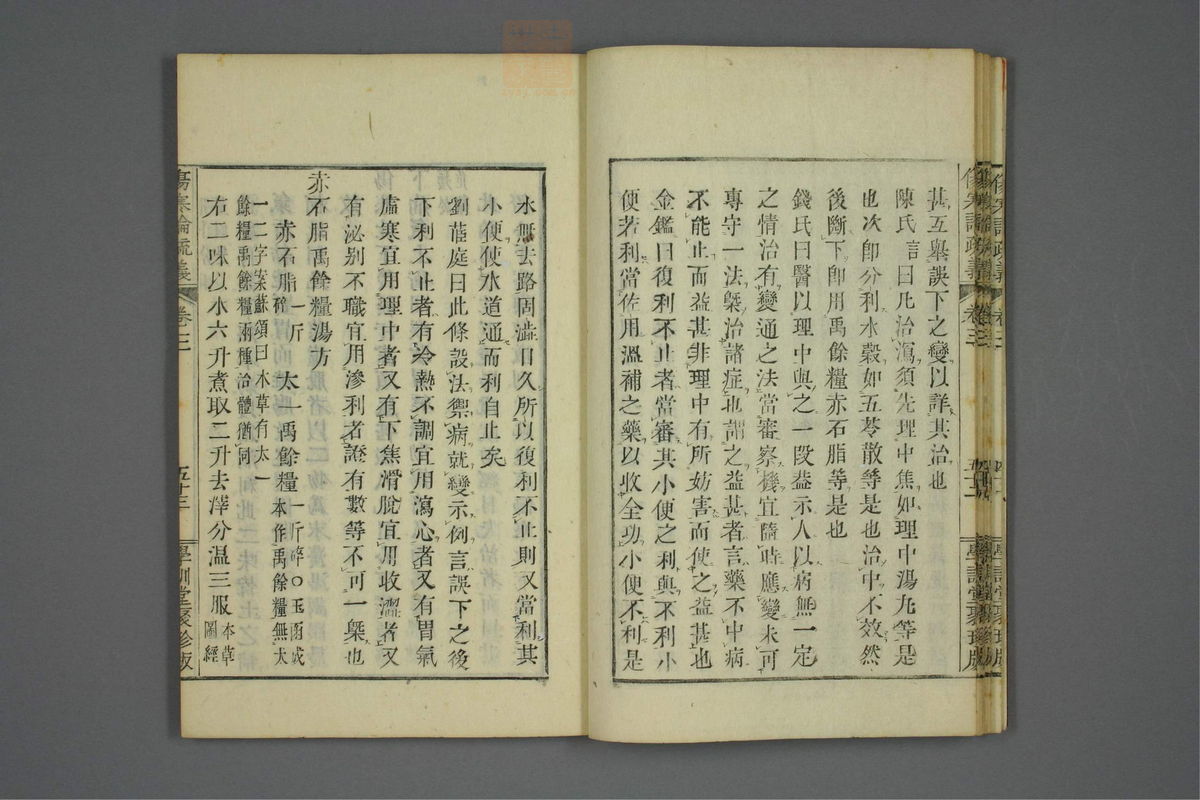 甚互舉誤下之變以詳其治也
陳氏言曰凡治瀉須先理中焦如理中湯丸等是
也次卽分利水穀如五苓散等是也治中不效然
後斷下卽用禹餘糧赤石脂等是也
錢氏曰醫以理中與之一段葢示人以病無一定
之情治有變通之法當審察機宜隨時應變未可
專守一法槩治諸症也謂之益甚者言藥不中病
不能止而益甚非理中有所妨害而使之益甚也
金鑑曰復利不止者當審其小便之利與不利小
便若利當佐用溫補之藥以收全功小便不利是
水無去路固澁日久所以復利不止則又當利其
小便使水道通而利自止矣
劉茝庭曰此條設法禦病就變示例言誤下之後
下利不止者有冷熱不調宜用瀉心者又有胃氣
虛寒宜用理中者又有下焦滑脫宜用收澀者又
有泌別不職宜用滲利者證有數等不可一槩也
赤石脂禹餘糧湯方
赤石脂一斤碎 太一禹餘糧一斤碎○玉函成
本作禹餘糧無太
一二字案蘇頌曰本草有太一
餘糧禹餘糧兩種治體猶同
右二味以水六升煮取二升去滓分溫三服本草
圖經
傷寒論疏義
卷三
五十三
學訓堂聚珍版